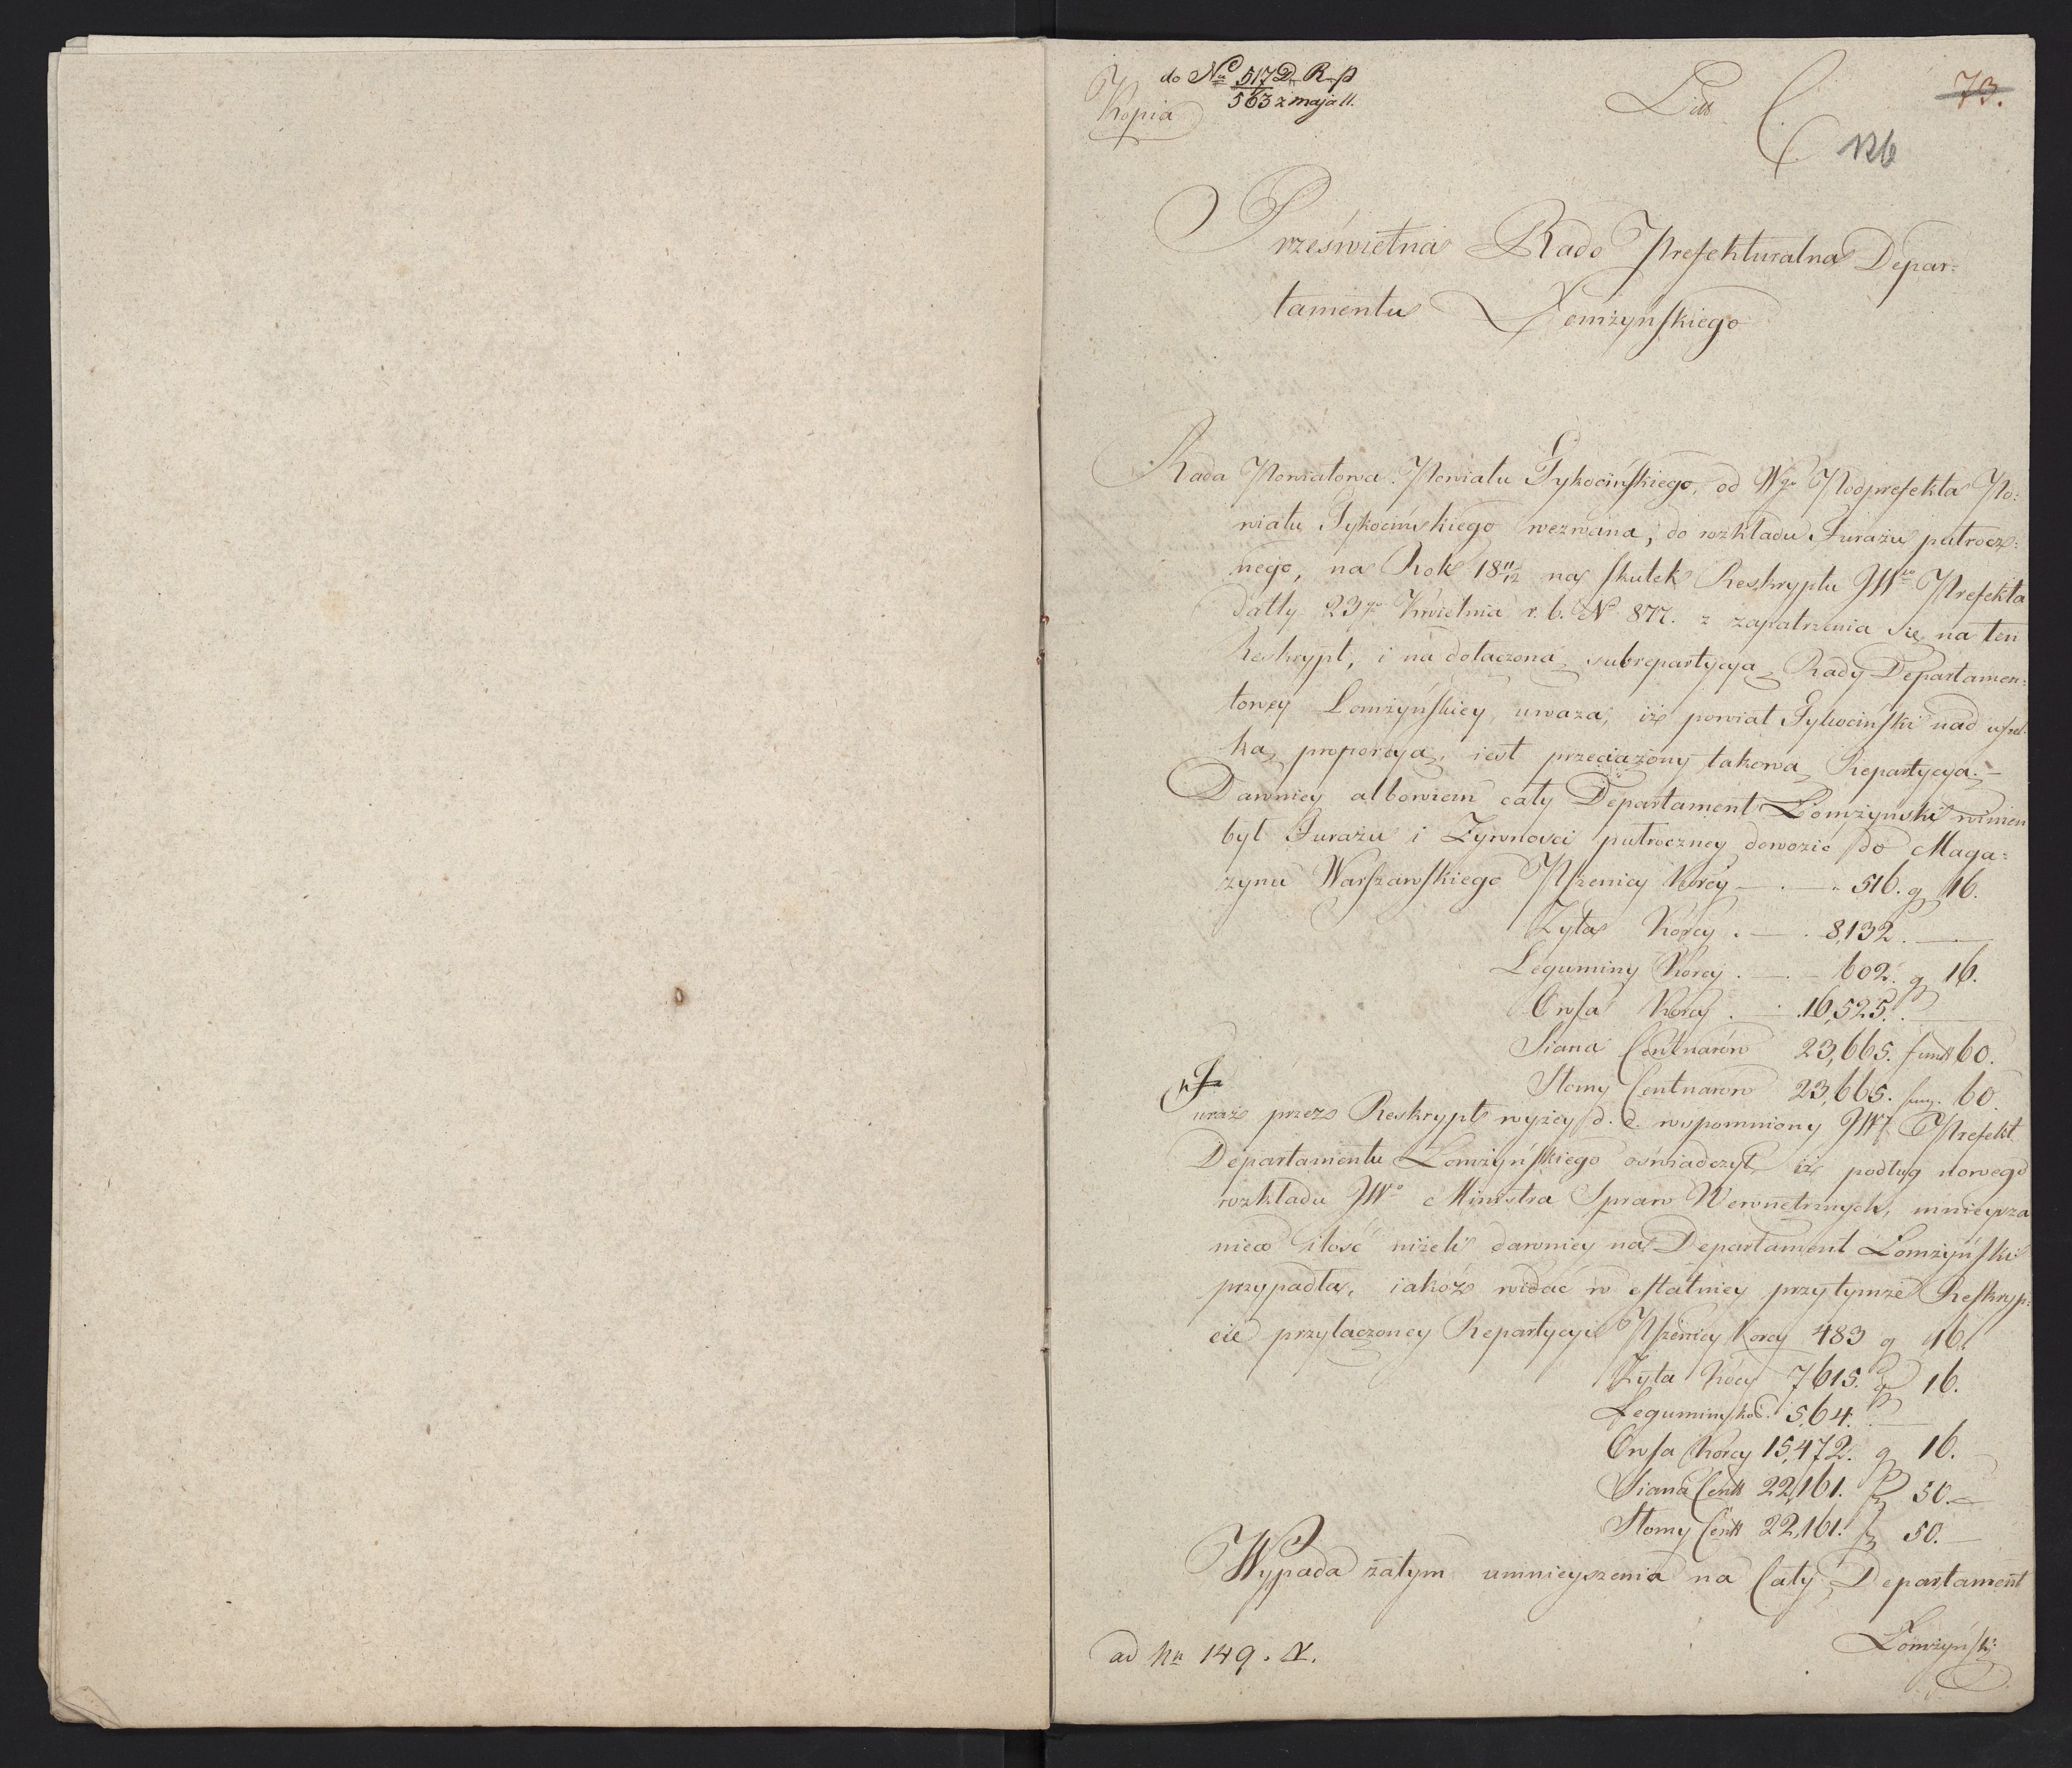 do Nu 517 D. R. p
563 z maja 11.
Kopia
Litt C.
73.
126
Prześwietna Rado Prefekturalna Depar=
tamentu Łomżyńskiego
Rada Powiatowa Powiatu Tykocińskiego, od Wgo Podprefekta Po:
wiatu Tykocinskiego wezwana, do rozkładu Furażu putrocz:
nego, na Rok 18 11/12 na skutek Reskryptu JWo Prefekta
datty 23go Kwietnia r. b. No 877. z zapatrzenia się na ten
Reskrypt, i na dołączoną subrepartycyą Rady Departamen:
towey Łomżyńskiey uwaza, iż powiat Tykociński nad wszel:
ką proporcyą, iest przeciążony takową Repartycyą. —
Dawniey albowiem cały Departament Łomżynski winien
był Furażu i Żywnosci putroczney dowozić do Maga=
zynu Warszawskiego Pszenicy Korcy — . — 516. g 16.
Żyta Korcy . — . 8,132 . —
Leguminy Korcy . — . — 602. g 16.
Owsa Korcy . — . 16,525. . —
Siana Centnarów 23,665. funt 60.
Słomy Centnarow 23,665. fun. 60.
uraz przez Reskrypt wyżey d. d. wspomniony JW Prefekt
Departamentu Łomżyńskiego oświadczył, iż podług nowego
rozkładu JWo Ministra Spraw Wewnętrznych, mnieysza
nieco ilość niżeli dawniey na Departament Łomżyński
przypadła, iakoż widać w ostatniey przytymże Reskryp=
cie przyłączoney Repartycyi Pszenicy Korcy 483 g 16.
Żyta Korcy 7615. g 16.
Leguminy kor. 564. —
Owsa Korcy 15,472. g 16.
Siana Cent 22,161. f 50. —
Słomy Cent 22,161. f 50. —
Wypada zatym umnieyszenia na Cały Departament
Łomżyński
ad Nu 149.